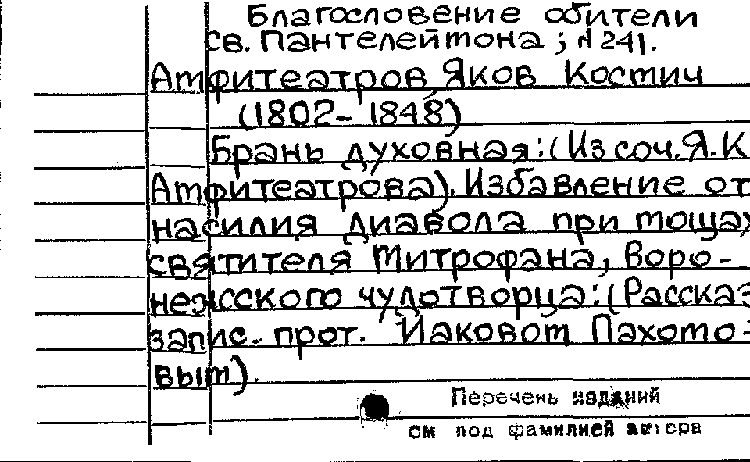 Благословение обители
св. Пантелеймона ; № 241.
Амфитеатров, Яков Костич
(1802-1848)
Брань духовная: (Из соч. Я.К
Амфитеатрова). Избавление от
насилия диавола при мощах
святителя Митрофана, Воро-
нежского чудотворца: (Рассказ
запис. прот. Иаковом Пахомо-
вым).
Перечень изданий
см под фамилией автора